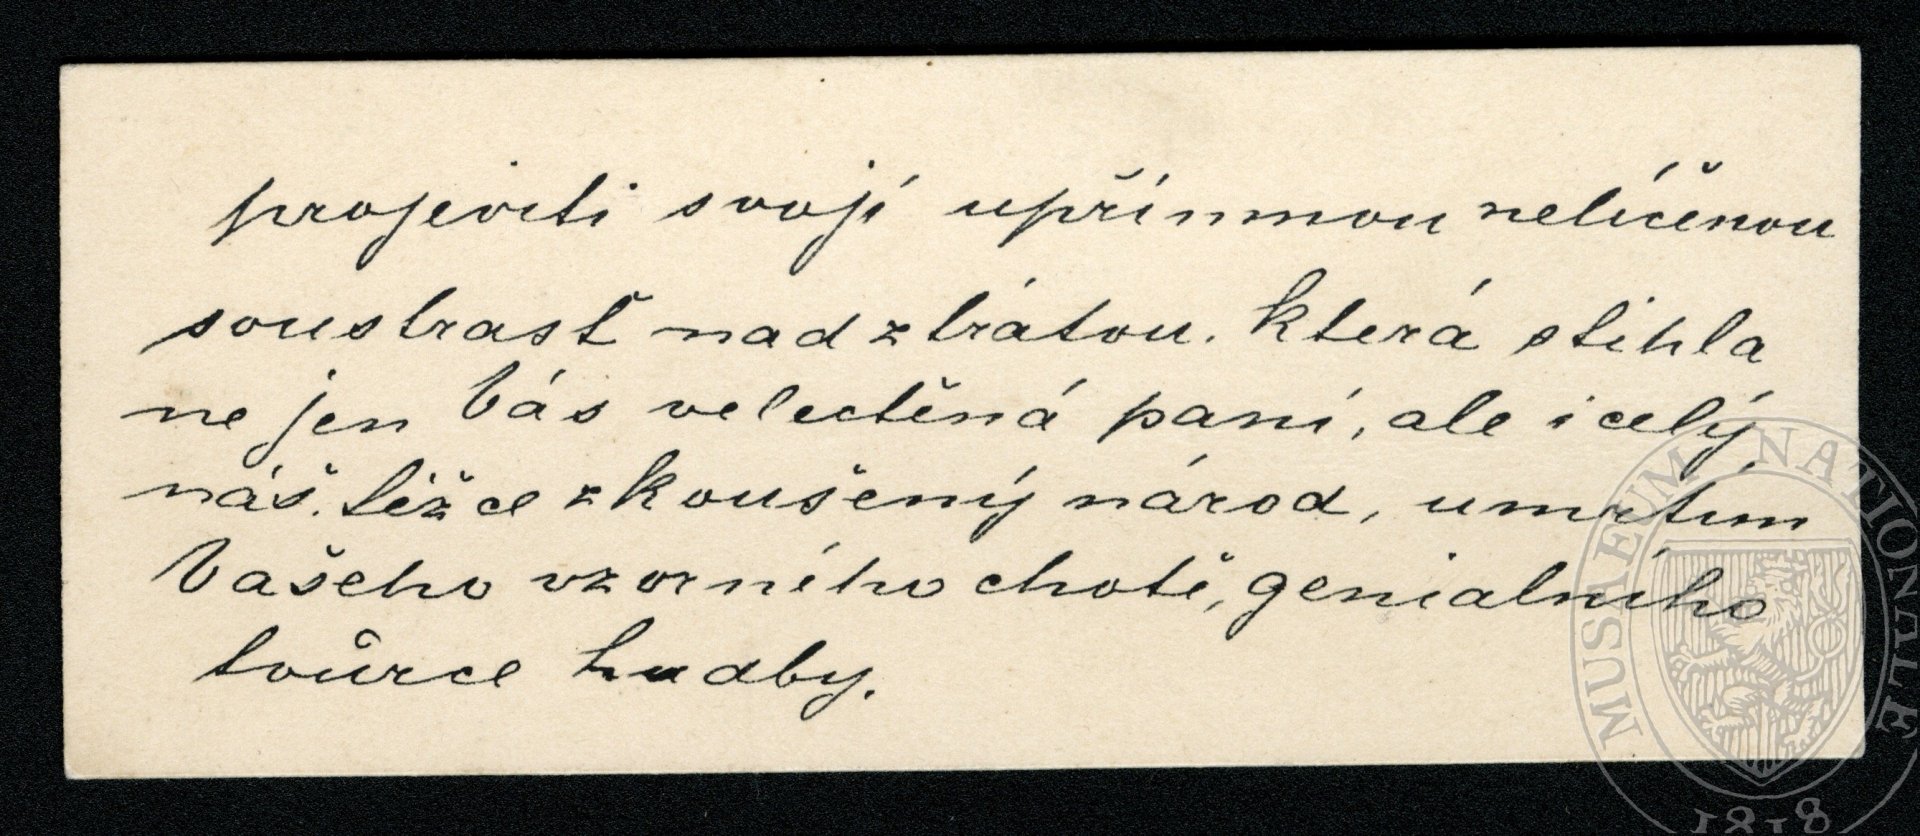 projeviti svojí upřínmou nelíčenou
soustrasť nad ztrátou. která stihla
ne jen Vás velectěná paní, ale i celý
náš. těžce zkoušený národ, umrtím
Vašeho vzorného chotě, genialního
tvůrce hudby.
MUSAEUM NATIONALE
1818